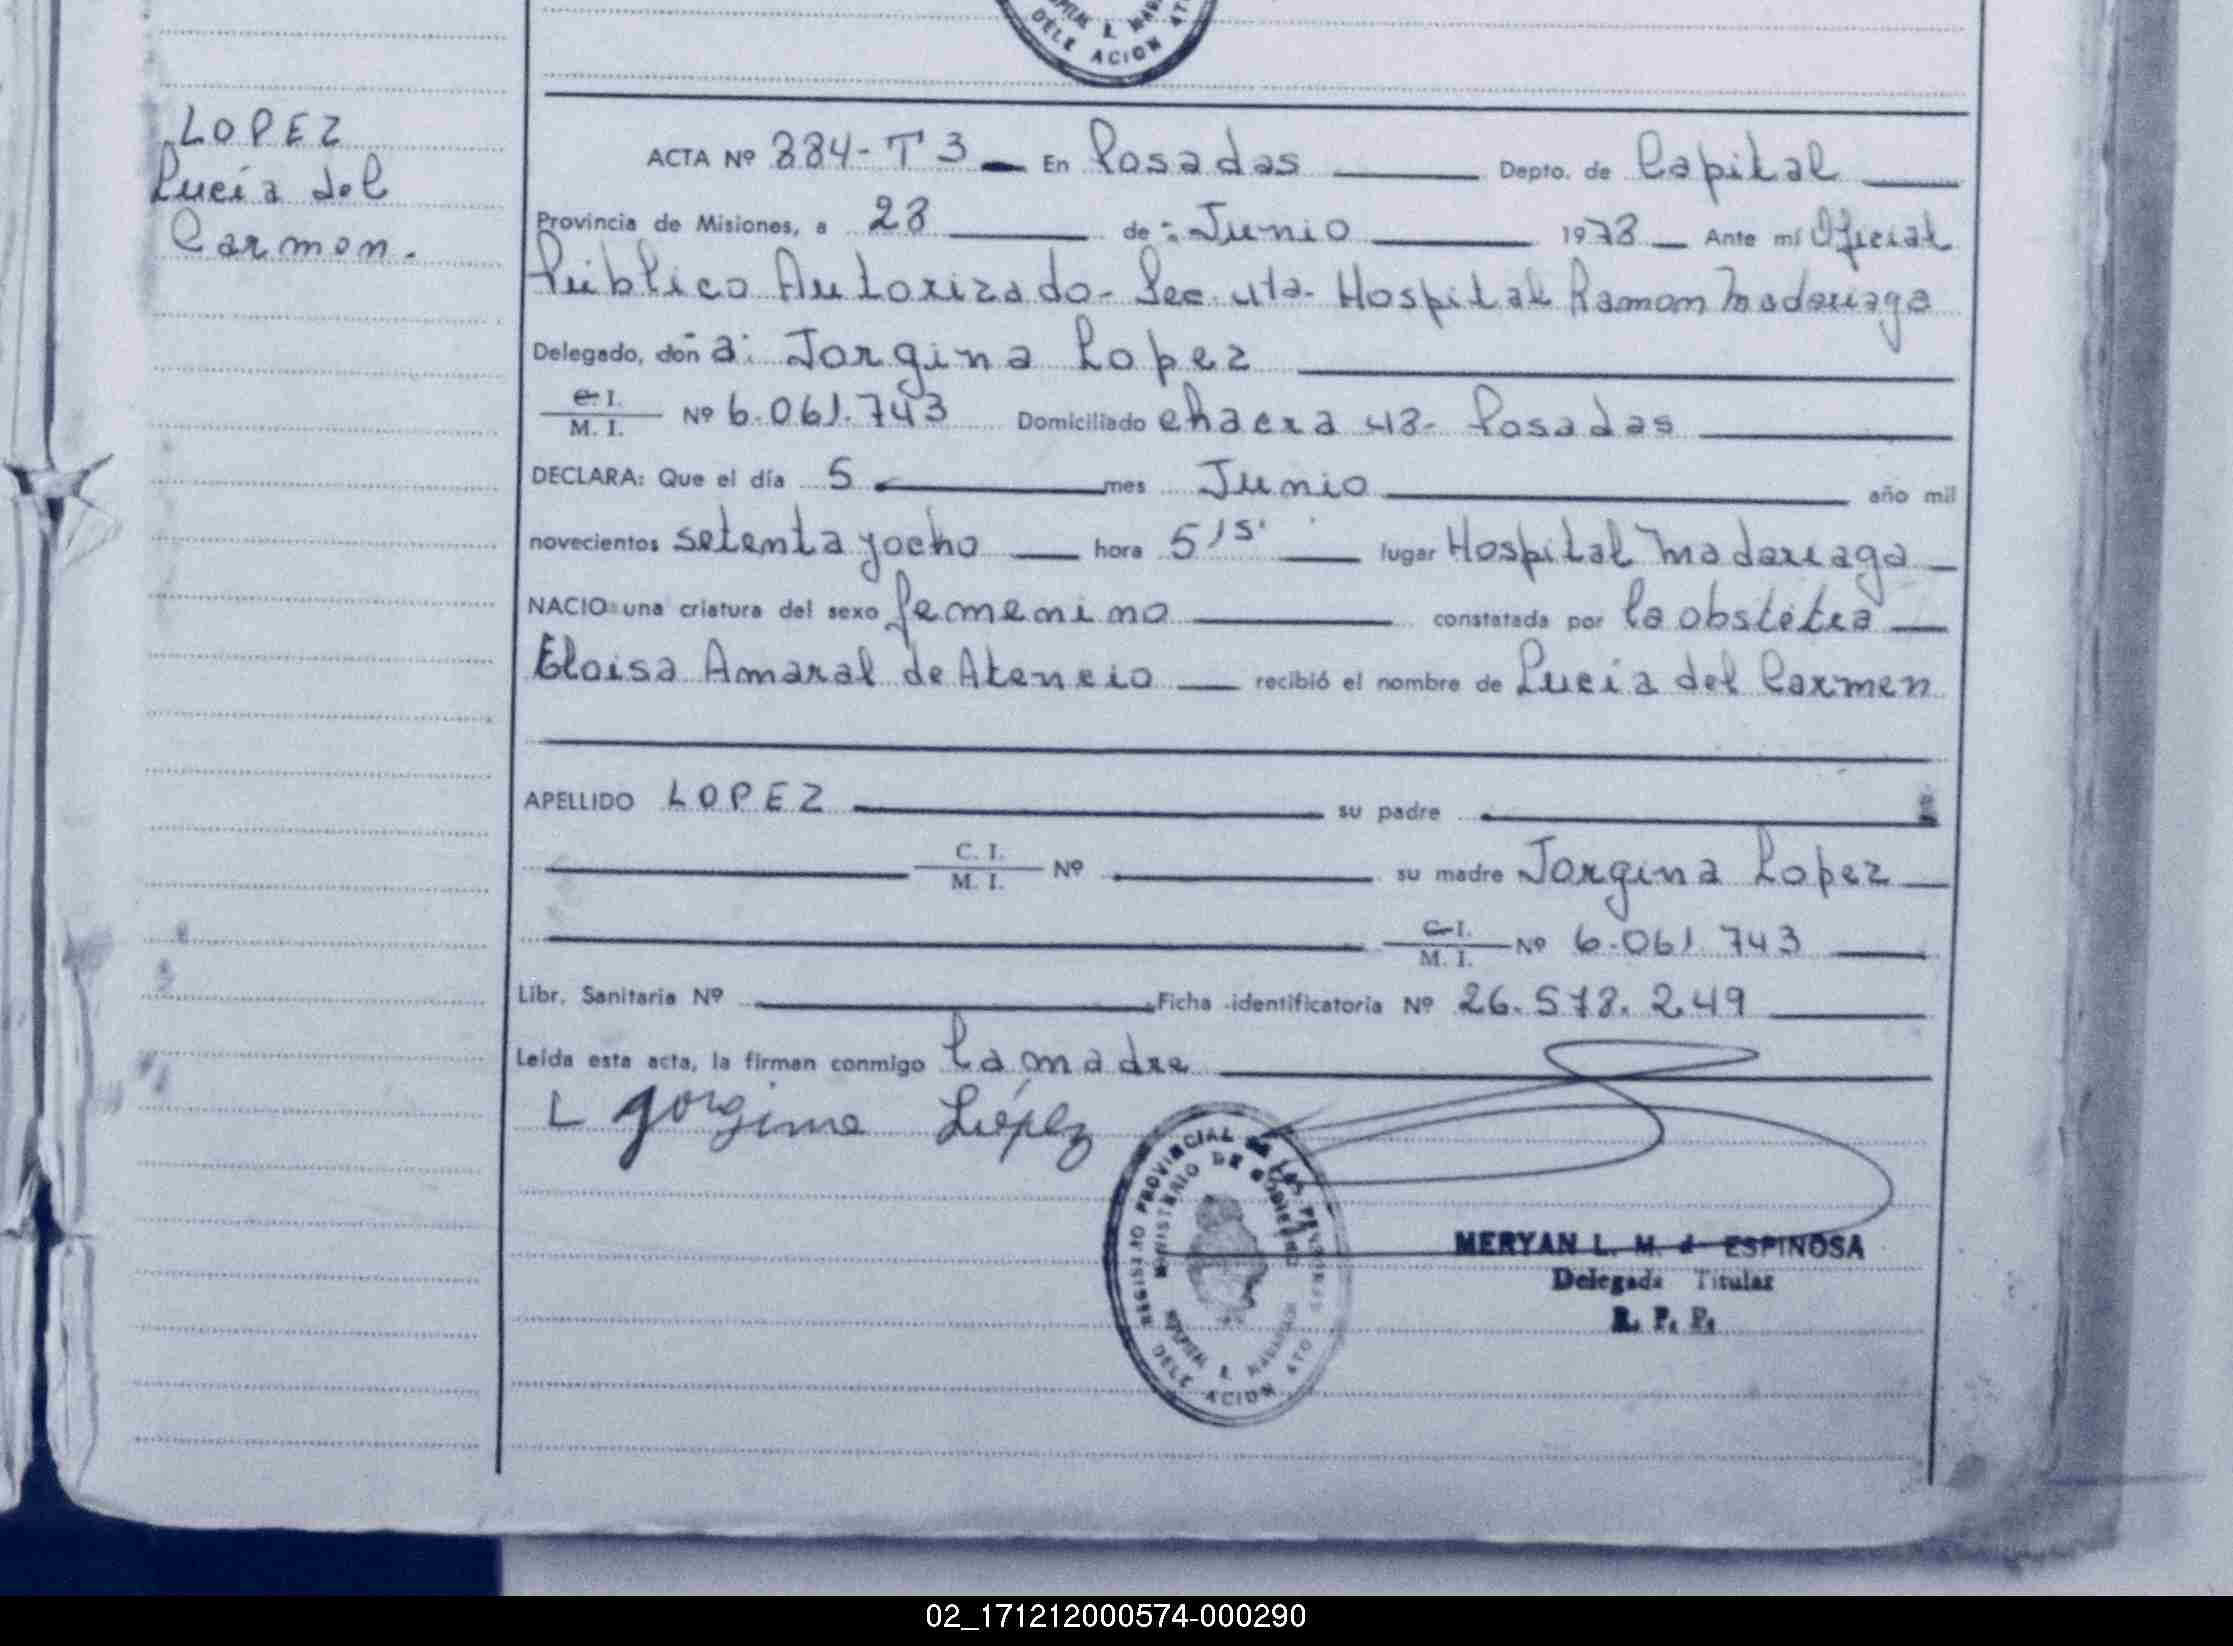 DELE ACION 4TO
LOPEZ
Lucía del
Carmen.
ACTA Nº 884-T3 En Posadas Depto. de Capital
Provincia de Misiones, a 28 de: Junio 1978 Ante mí Oficial
Público Autorizado- Sec. 4ta- Hospital Ramon Madariaga
Delegado, doña: Jorgina Lopez
C. I.
M. I. Nº 6.061.743 Domiciliado chacra 48- Posadas
DECLARA: Que el día 5 mes Junio año mil
novecientos setenta y ocho hora 5,15' lugar Hospital Madariaga
NACIO una criatura del sexo femenino constatada por la obstétra
Eloisa Amaral de Atencio recibió el nombre de Lucía del Carmen
APELLIDO LOPEZ su padre
C. I.
M. I. Nº su madre Jorgina Lopez
C. I.
M. I. Nº 6.061.743
Libr. Sanitaria Nº Ficha identificatoria Nº 26.578.249
Leída esta acta, la firman conmigo la madre
L Jorgina López
REGISTRO PROVINCIAL DE LAS PERSONAS
MINISTERIO DE GOBIERNO
DELE ACION 4TO
MERYAN L. M. d ESPINOSA
Delegada Titular
R. P. P.
02_171212000574-000290